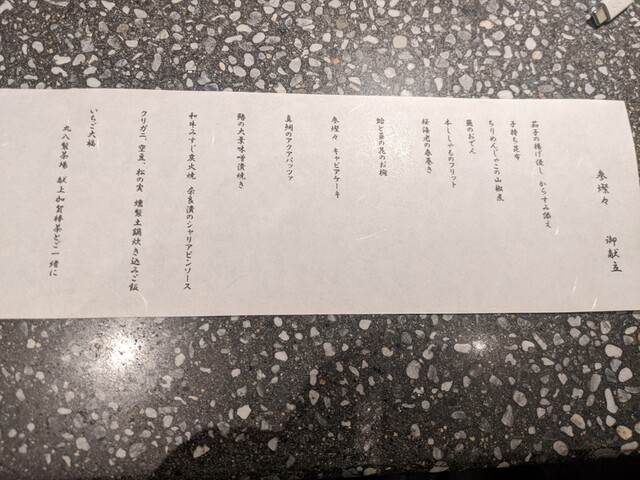 参燦々 御献立
茄子の揚げ浸し からすみ添え
子持ち昆布
ちりめんじゃこの山椒煮
蕪のおでん
本ししゃものフリット
桜海老の春巻き
蛤と菜の花のお椀
参燦々 キャビアケーキ
真鯛のアクアパッツァ
鰆の大葉味噌漬焼き
和牛みすじ炭火焼 奈良漬のシャリアピンソース
クリガニ、空豆、松の実 燻製土鍋炊き込みご飯
いちご大福
丸八製茶場 献上加賀棒茶とご一緒に